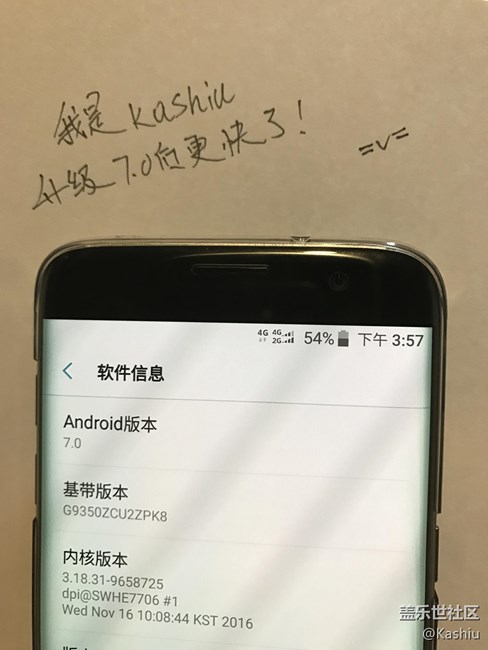 我是kashiu
升级7.0后更快了！
=v=
4G 4G 2G 54% 下午 3:57
软件信息
Android版本
7.0
基带版本
G9350ZCU2ZPK8
内核版本
3.18.31-9658725
dpi@SWHE7706 #1
Wed Nov 16 10:08:44 KST 2016
盖乐世社区
@Kashiu